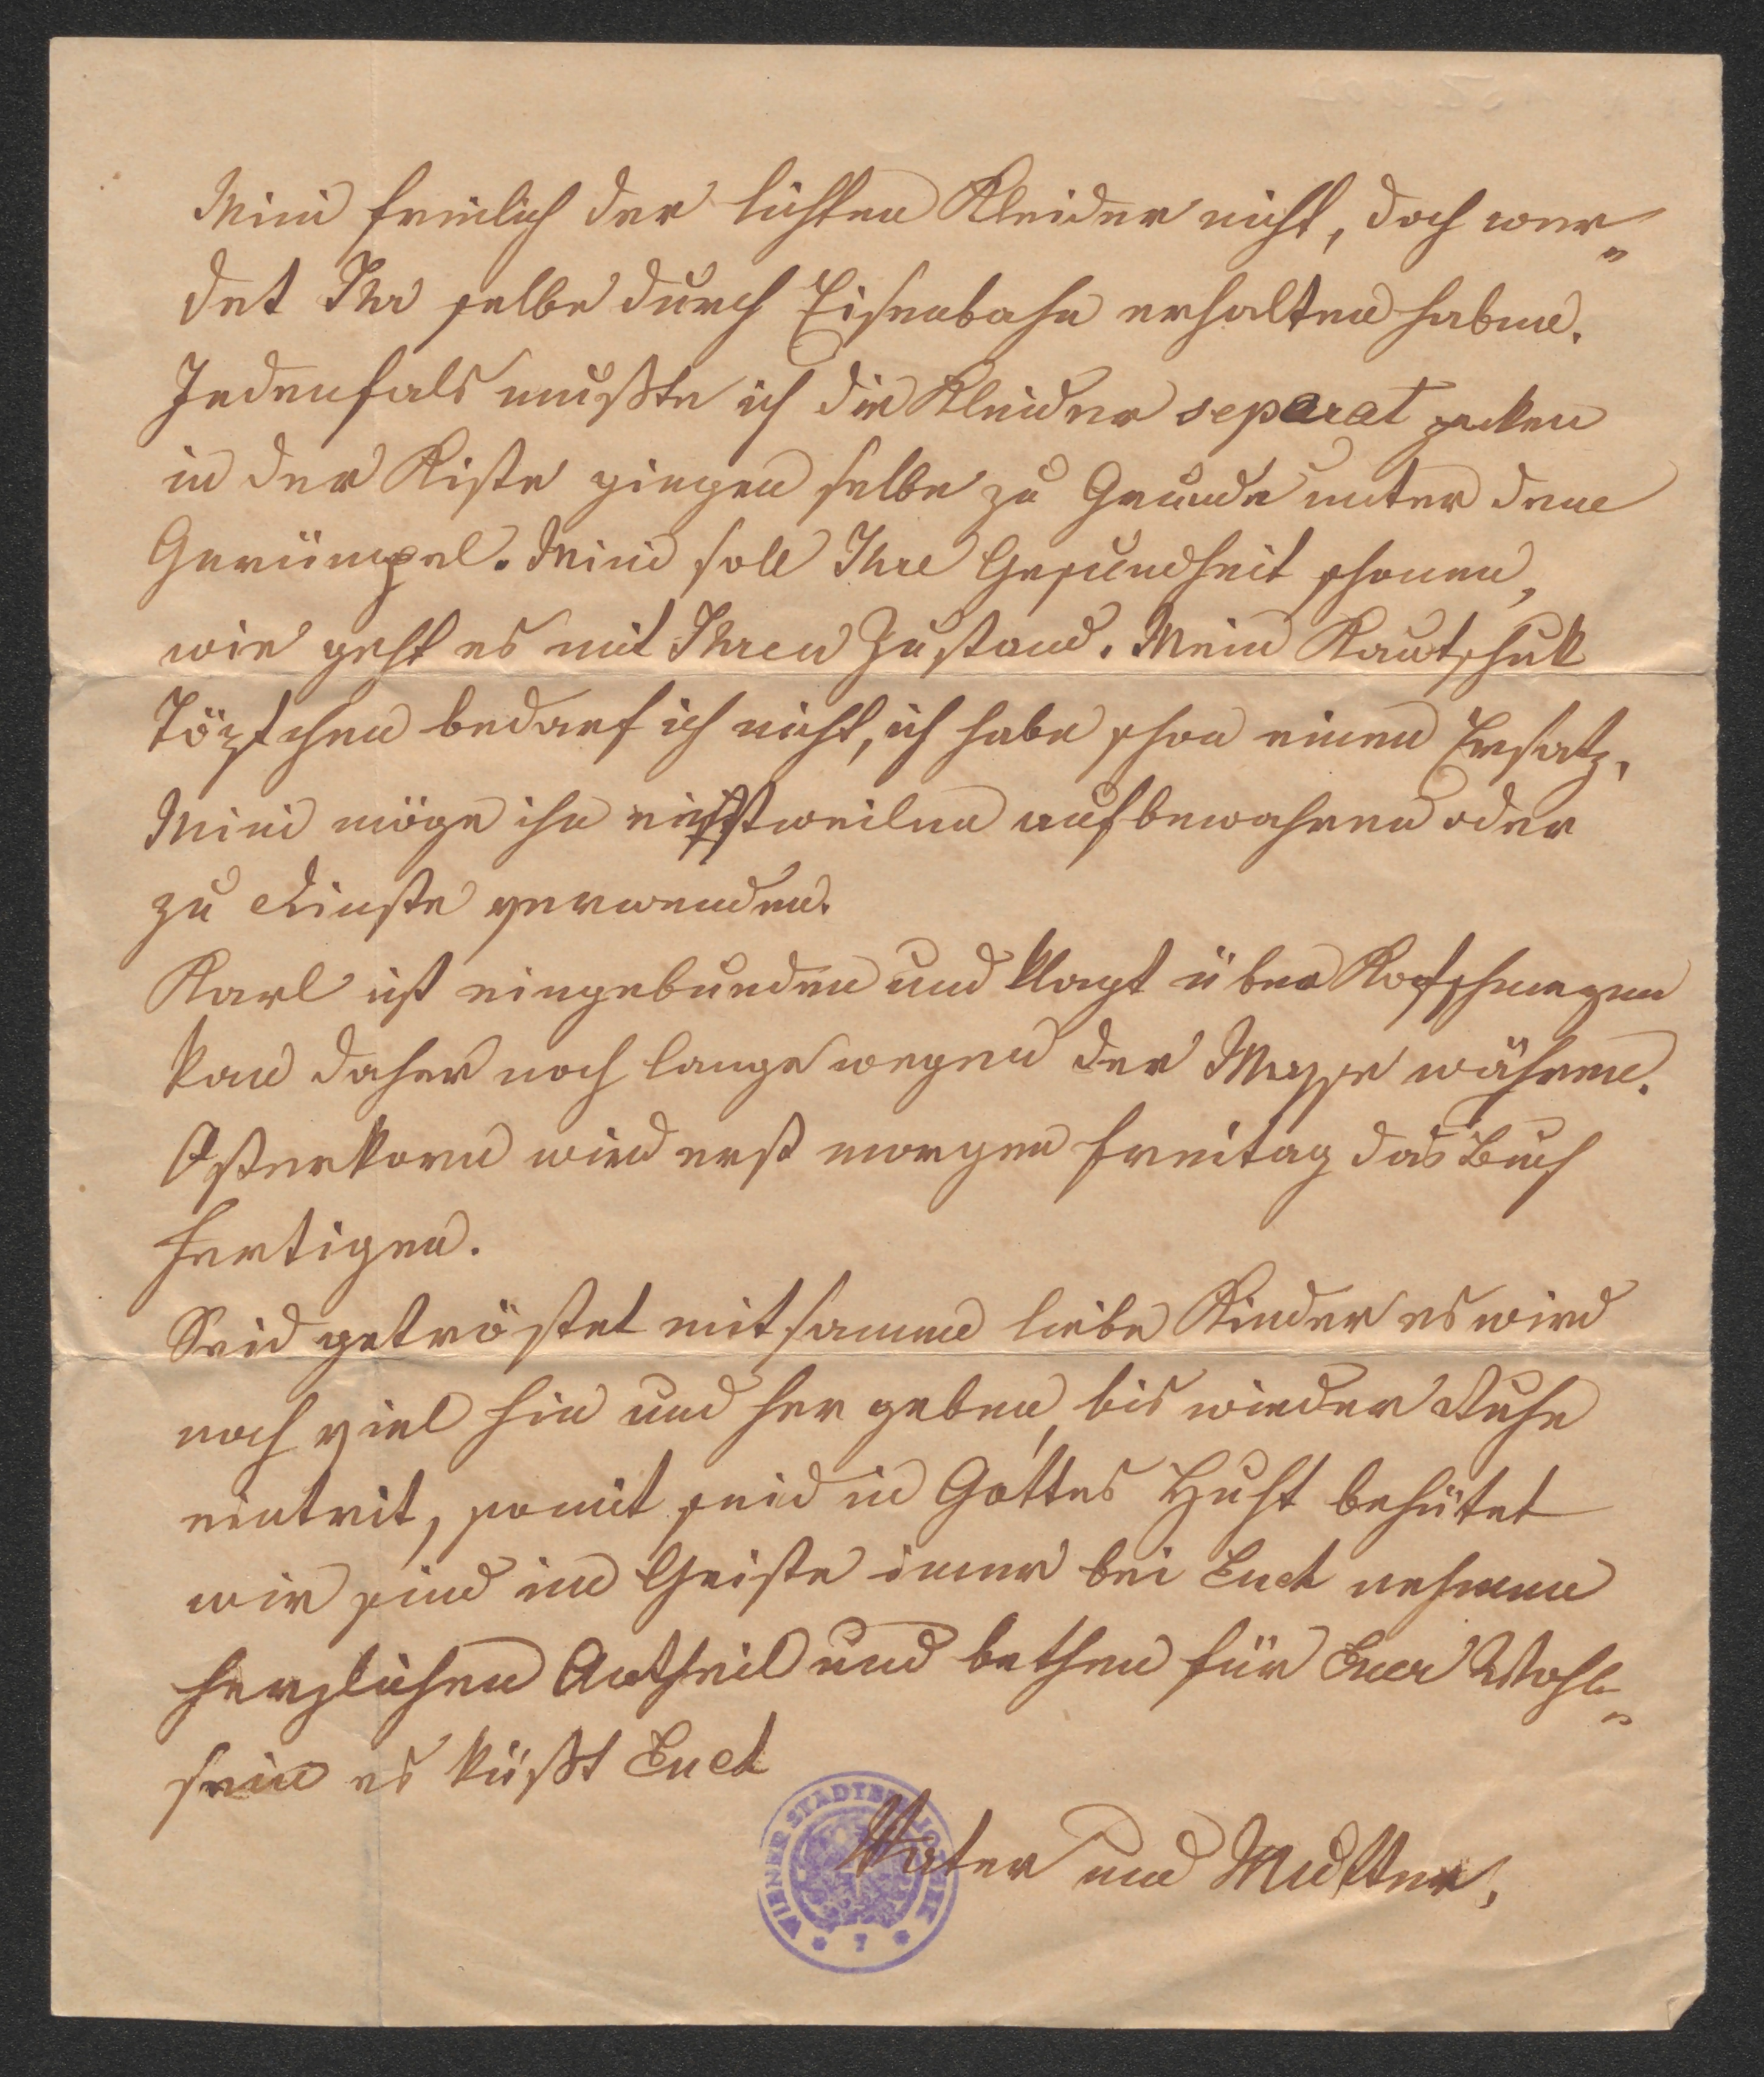 Mini freilich der lichten Kleider nicht, doch wer„
det Ihr selbe durch Eisenbahn erhalten haben.
Jedenfals mußte ich die Kleider separat packen
in der Kiste giengen selbe zu Grunde unter dem
Gerümpel. Mini soll Ihre Gesundheit schonen,
wie geht es mit Ihren Zustand. Mein Kautschuk
Töpfchen bedarf ich nicht, ich habe schon einen Ersatz,
Mini möge ihn einstweilen aufbewahren oder
zu Dinste verwenden.
Karl ist eingebunden und klagt über Kopfschmerzen
kan daher noch lange wegen der Masse währen.
Osterkorn wird erst morgen Freitag das Buch
fertigen.
Seid getröstet mitsamme liebe Kinder es wird
noch viel hin und her geben, bis wieder Ruhe
eintrit, somit seid in Gottes Huht behütet
wir sind im Geiste imer bei Euch nehmen
herzlichen Antheil und bethen für Euer Wohl„
sein es küßt Euch
Vater und Mutter,
WIENER STADTBIBLIOTHEK
7